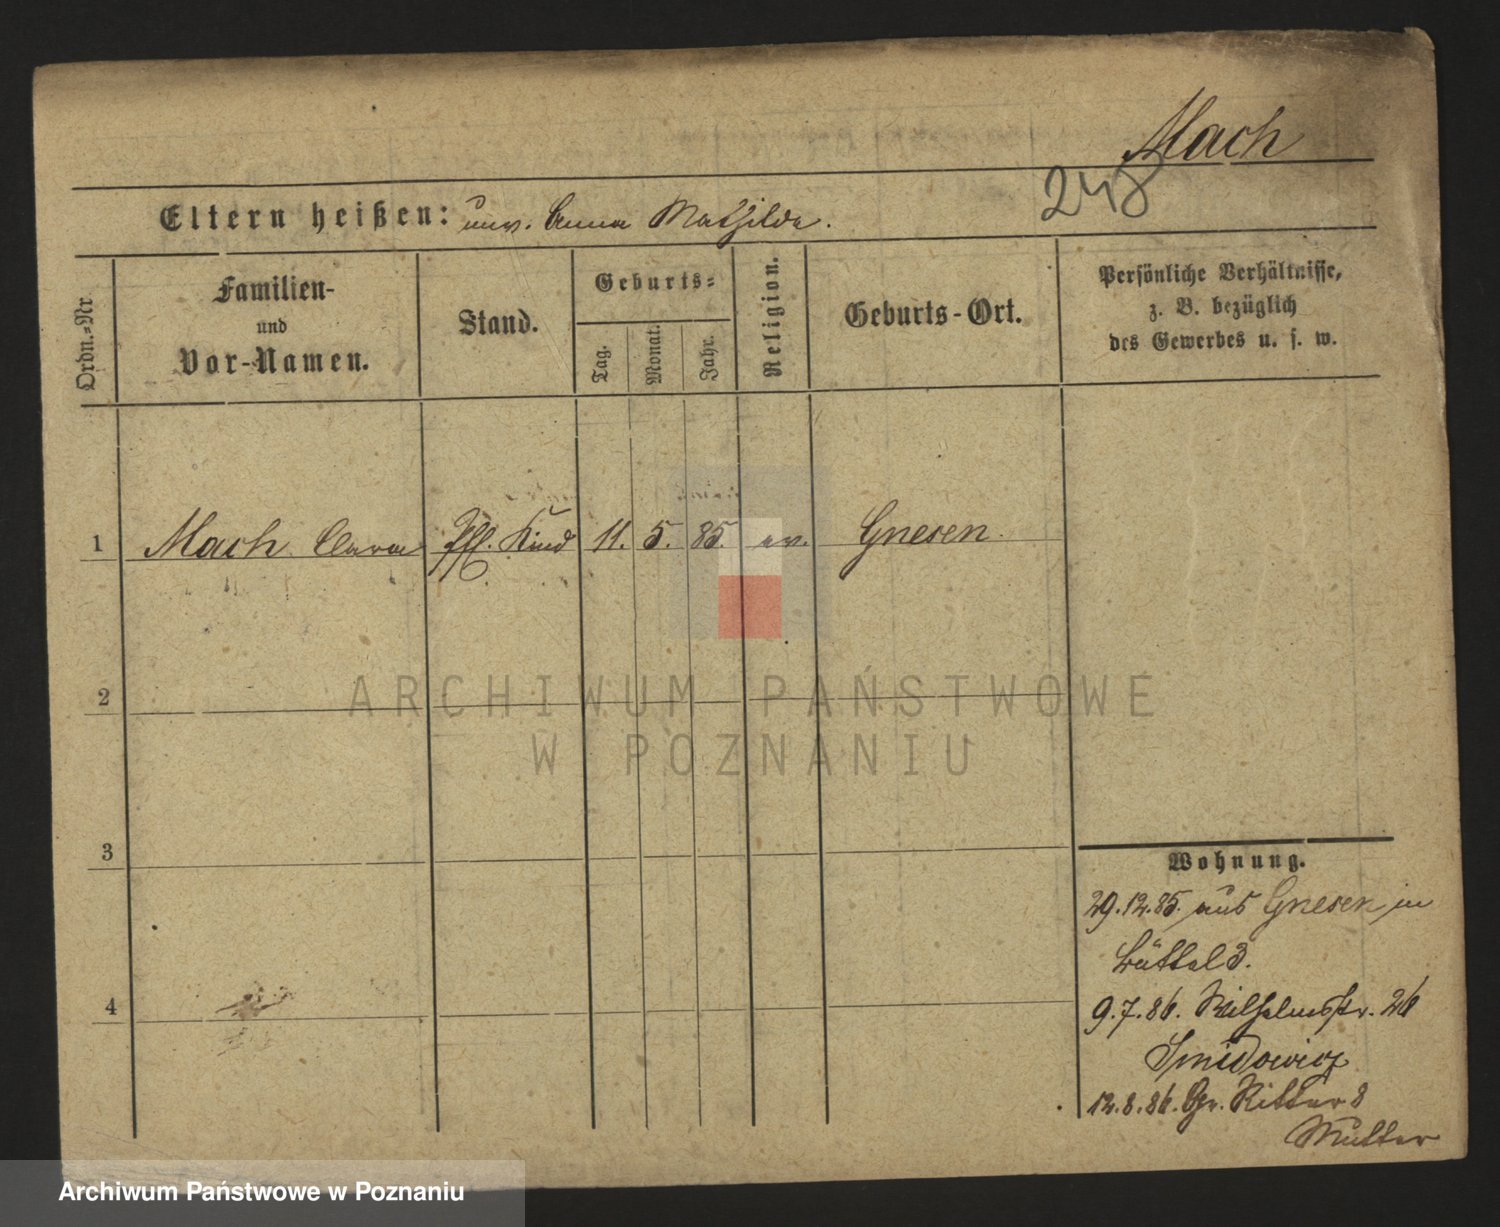 Mach
248
Eltern heißen: unv. Anna Mathilde.
Ordn.=Nr
Familien-
und
Vor-Namen.
Stand.
Geburts=
Tag.
Monat.
Jahr.
Religion.
Geburts-Ort.
Persönliche Verhältnisse,
z. B. bezüglich
des Gewerbes u. s. w.
1 Mach Clara Pfl. Kind 11. 5. 85. ev. Gnesen
2
3
4
ARCHIWUM PAŃSTWOWE
W POZNANIU
Wohnung.
29.12.85. aus Gnesen in
Büttel 3.
9.7.86. Wilhelmstr. 26
Smidowicz
12.8.86. Gr. Ritter 8
Mutter
Archiwum Państwowe w Poznaniu